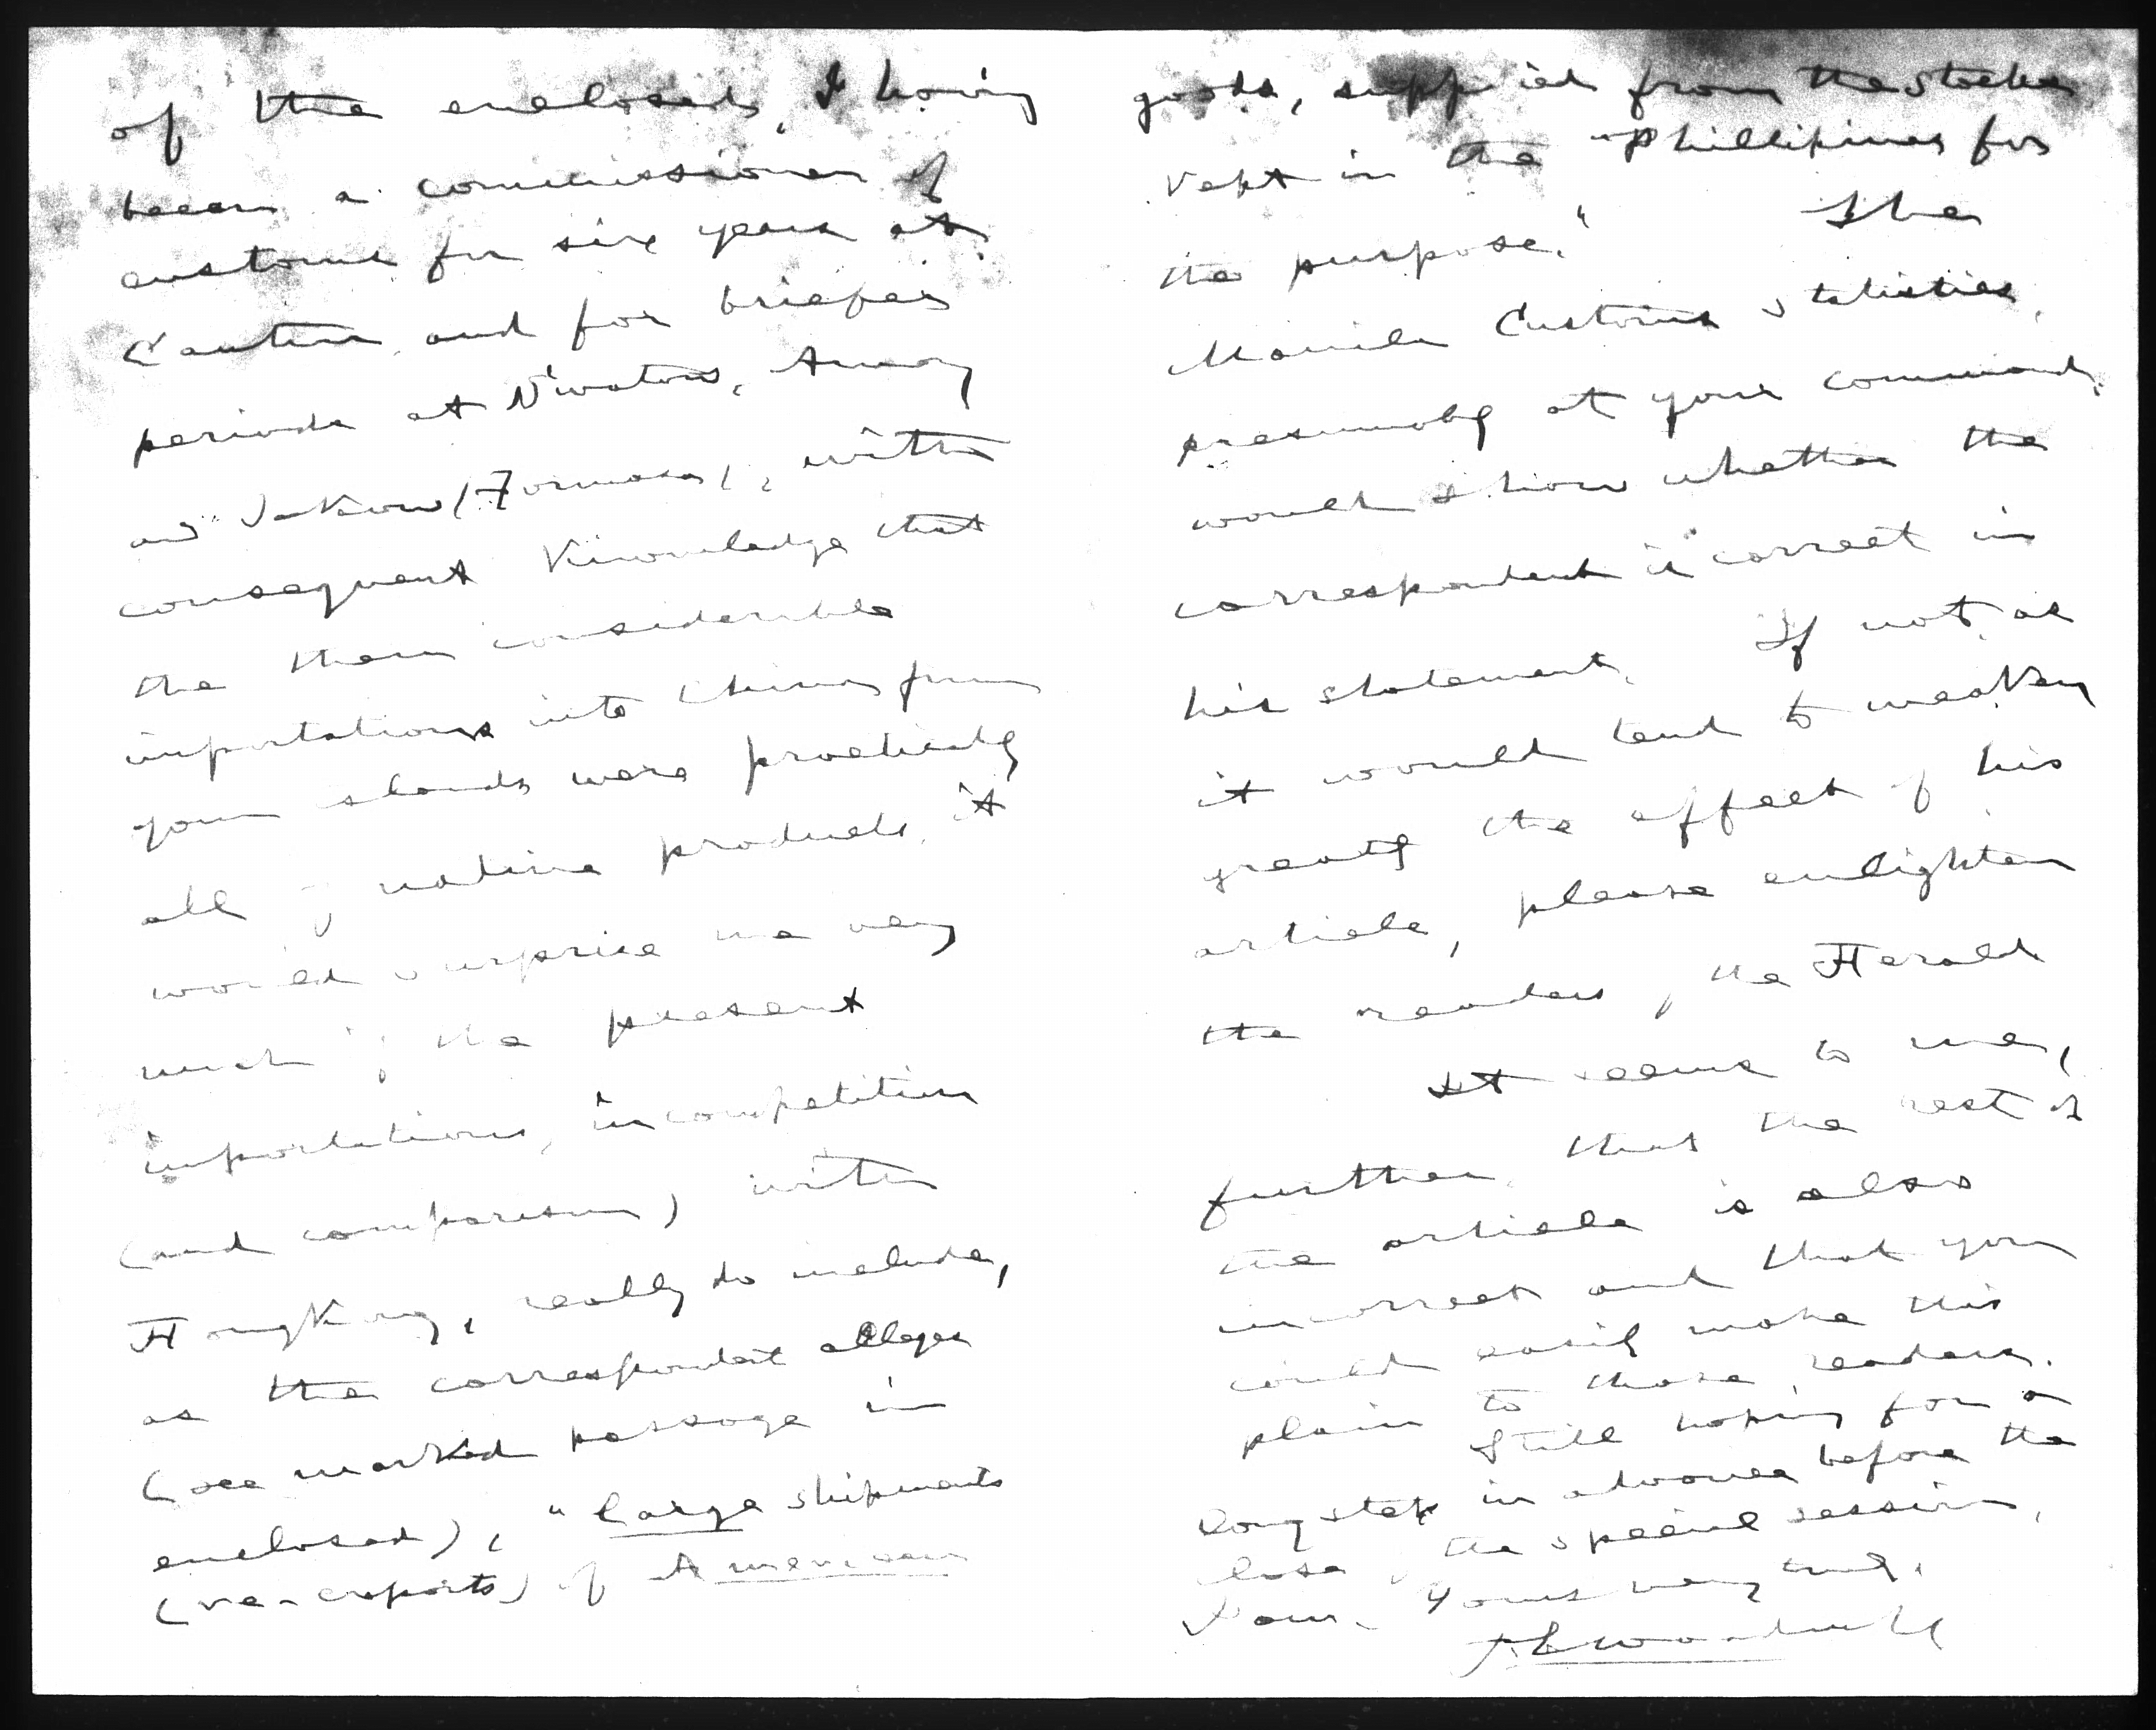 of the enclosed, I having
been a commissioner of
customs for six years at
Canton, and for briefer
periods at Swatow, Amoy
and Takow (Formosa), with
consequent knowledge that
the then considerable
importations into China from
your islands were practically
all of native products, it
would surprise me very
much if the present
importations, in competition
(and comparison) with
HongKong, really do include,
as the correspondent alleges
(see marked passage in
enclosed), "large shipments
(re-exports) of American
goods, supplied from the stocks
kept in the Phillipines for
the purpose." The
Manila Customs statistics,
presumably at your command,
would show whether the
correspondent is correct in
his statement. If not, as
it would tend to weaken
greatly the effect of his
article, please enlighten
the readers of the Herald
It seems to me,
further, that the rest of
the article is also
incorrect and that you
could easily make this
plain to those readers.
Still hoping for a
long step in advance before the
close of the special session,
I am, Yours very truly,